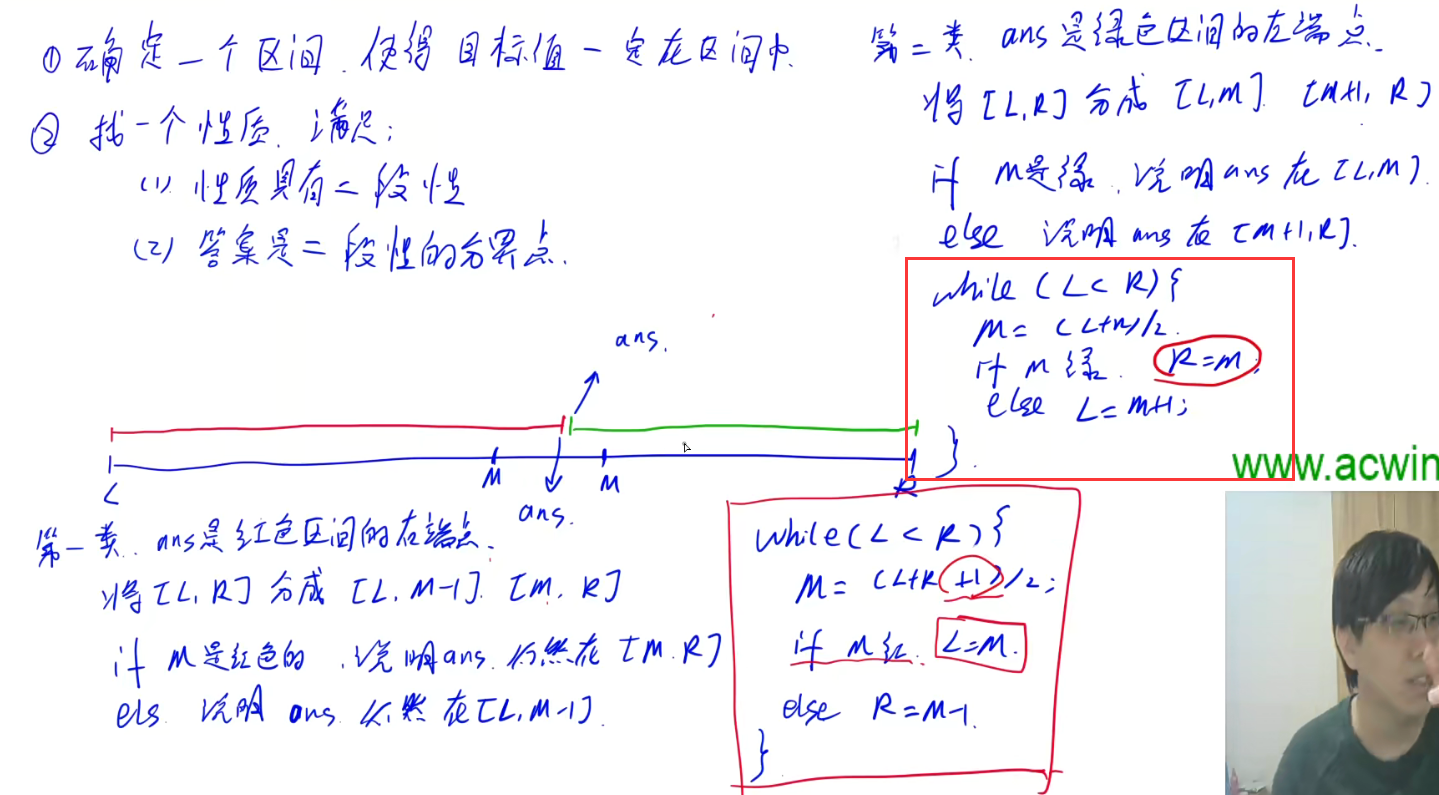 ① 确定一个区间，使得目标值一定在区间中.
② 找一个性质，满足：
(1) 性质具有二段性
(2) 答案是二段性的分界点.
ans.
L
M
M
R
ans.
第一类. ans是红色区间的右端点.
将[L, R] 分成 [L, M-1]. [M, R]
if M是红色的，说明ans 仍然在 [M, R]
els 说明 ans 仍然在[L, M-1].
while(L < R){
M = (L+R+1)/2;
if M红. L=M.
else R=M-1.
}
第二类. ans是绿色区间的左端点.
将 [L, R] 分成 [L, M] [M+1, R]
if M是绿，说明ans在 [L, M].
else 说明 ans在 [M+1, R].
while (L < R){
M = (L+R)/2.
if M绿. R=M;
else L=M+1;
}.
www.acwin